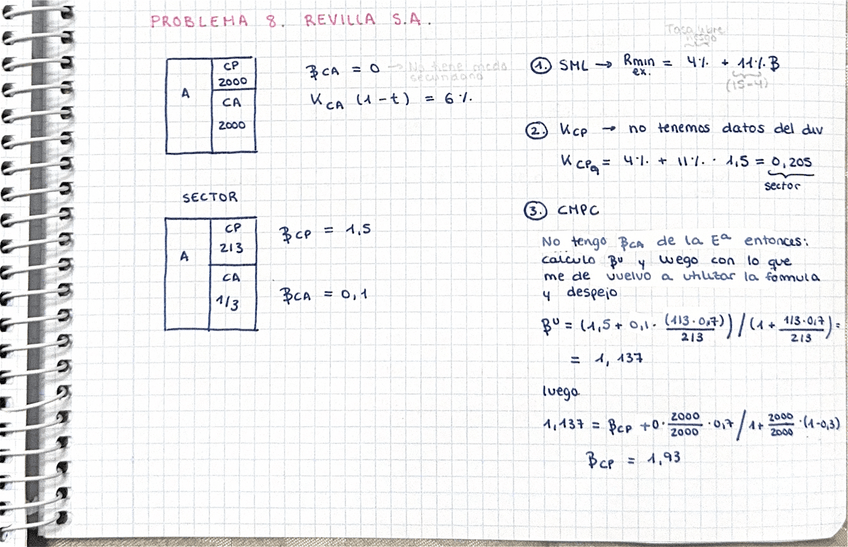 PROBLEMA 8. REVILLA S.A.
A
CP
2000
CA
2000
βCA = 0 → No tiene medo
secundario
KCA (1-t) = 6 %.
SECTOR
A
CP
2/3
CA
1/3
βCP = 1,5
βCA = 0,1
Tasa libre
riesgo
1. SML → Rmin = 4% + 11% β
ex.
(15-4)
2. KCP → no tenemos datos del div
KCPq = 4% + 11% · 1,5 = 0,205
sector
3. CMPC
No tengo βCA de la Eª entonces:
calculo βU y luego con lo que
me de vuelvo a utilizar la fórmula
y despejo
βU = (1,5 + 0,1 · (1/3·0,7)/2/3) / (1 + 1/3·0,7/2/3) =
= 1,137
luego
1,137 = βCP + 0 · 2000/2000 · 0,7 / 1 + 2000/2000 · (1-0,3)
βCP = 1,93